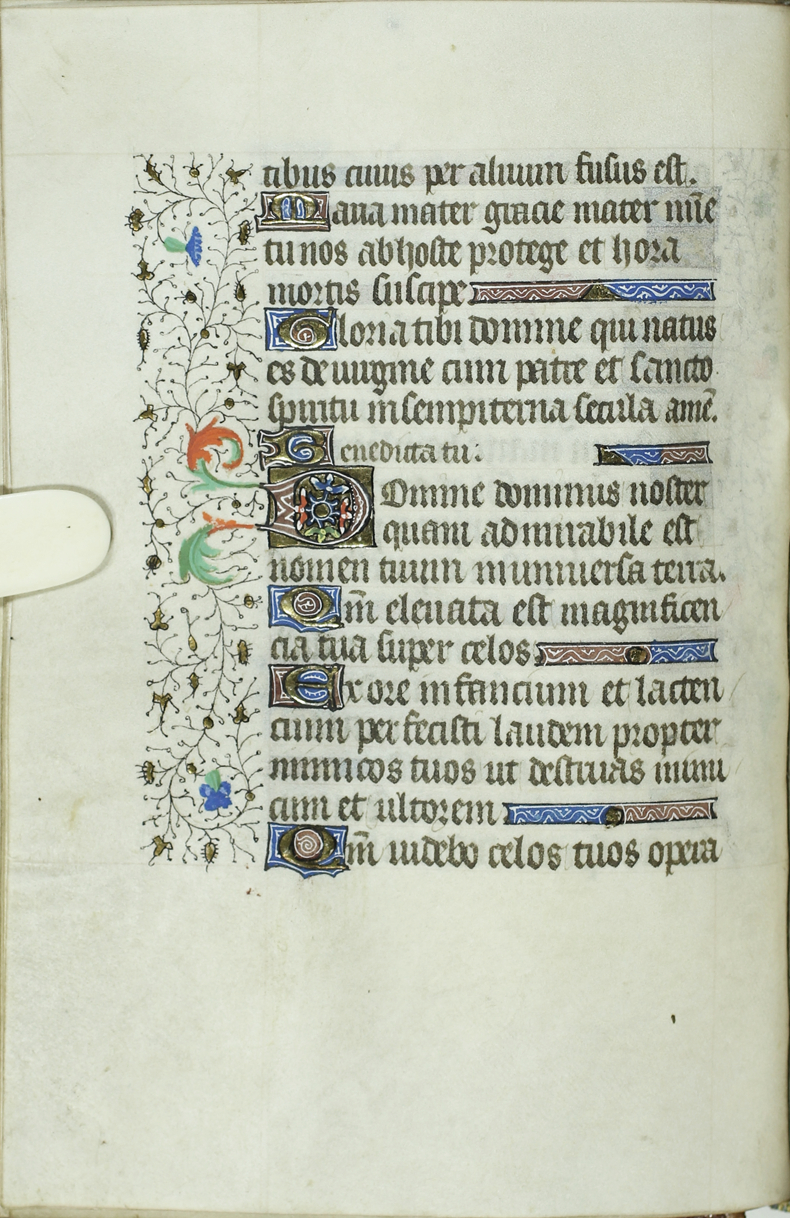 tibus cuius per aluum fusus est.
Maria mater gracie mater mīe
tu nos ab hoste protege et hora
mortis suscipe
Gloria tibi domine qui natus
es de uirgine cum patre et sancto
spiritu in sempiterna secula amē.
Benedicta tu:
Domine dominus noster
quam admirabile est
nomen tuum in uniuersa terra.
Qm̄ eleuata est magnificen
cia tua super celos
Ex ore infancium et lacten
cium perfecisti laudem propter
inimicos tuos ut destruas inimi
cum et ultorem
Qm̄ uidebo celos tuos opera